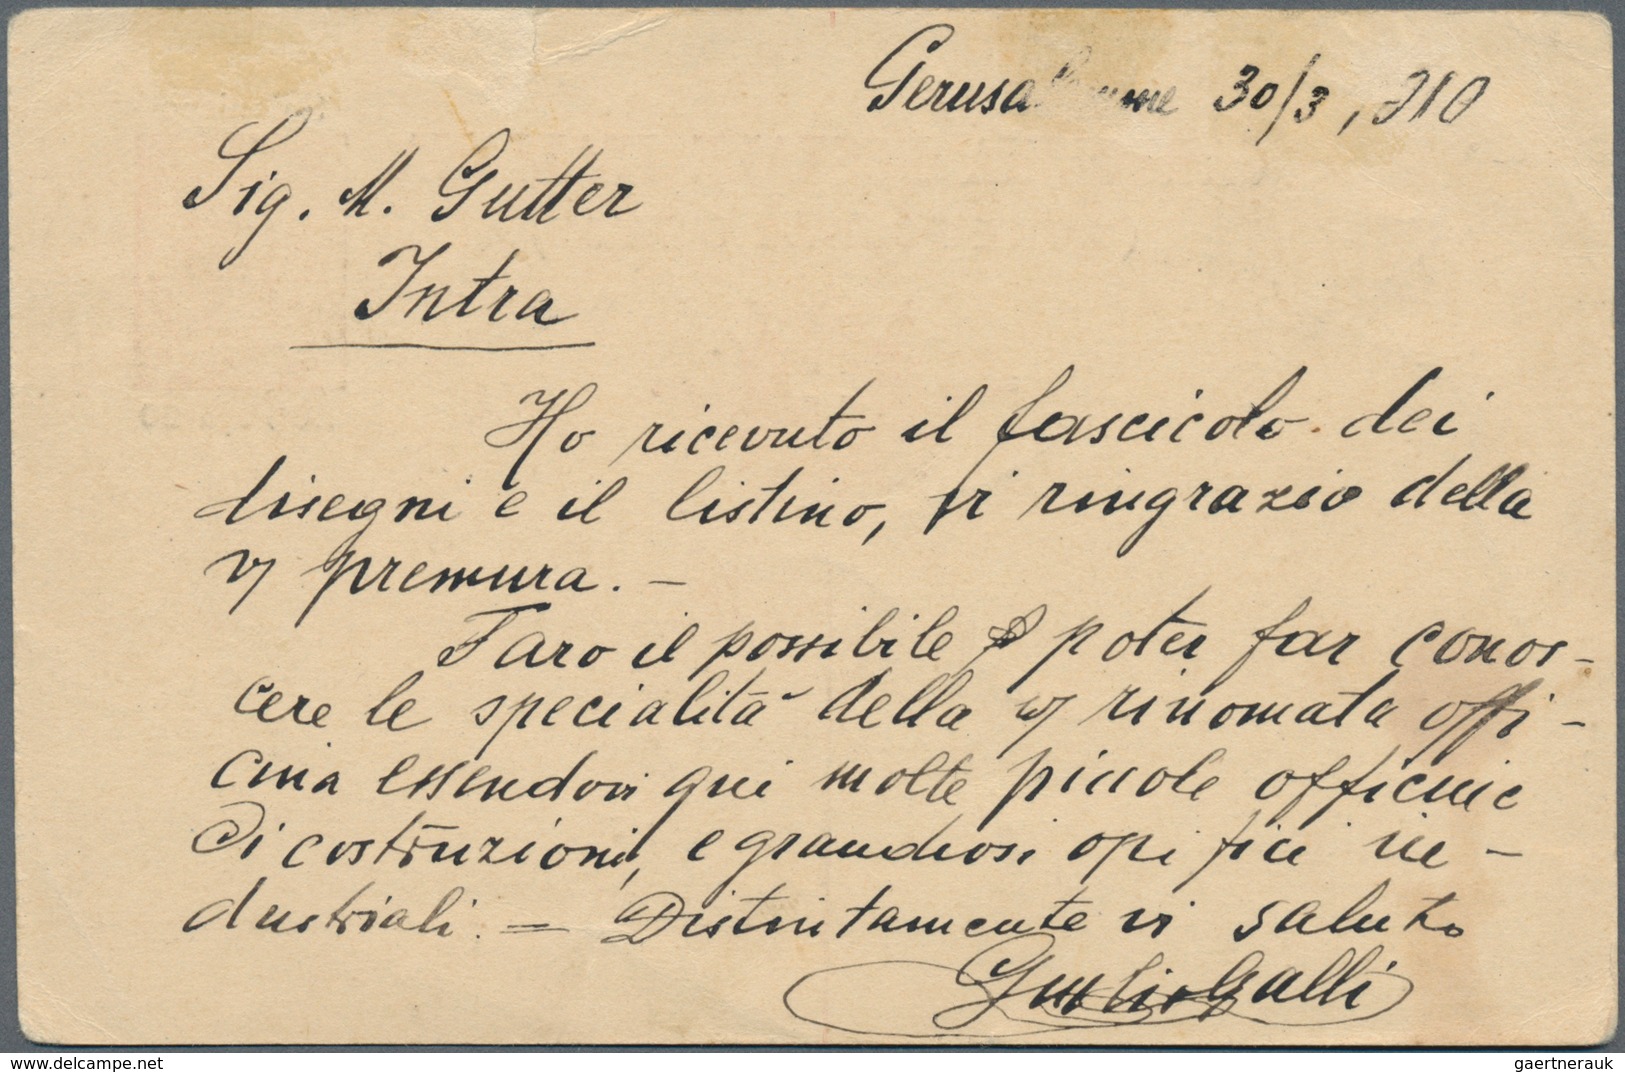 Gerusalemme 30/3, 910
Sig. M. Gutter
Intra
Ho ricevuto il fascicolo dei
disegni e il listino, vi ringrazio della
v/ premura. —
Faro il possibile poter far conos-
cere le specialità della v/ rinomata offi-
cina essendovi qui molte piccole officine
di costruzioni, e grandiosi opifici in-
dustriali. = Distintamente vi saluto
Giulio Galli
gaertnerauk / www.delcampe.net